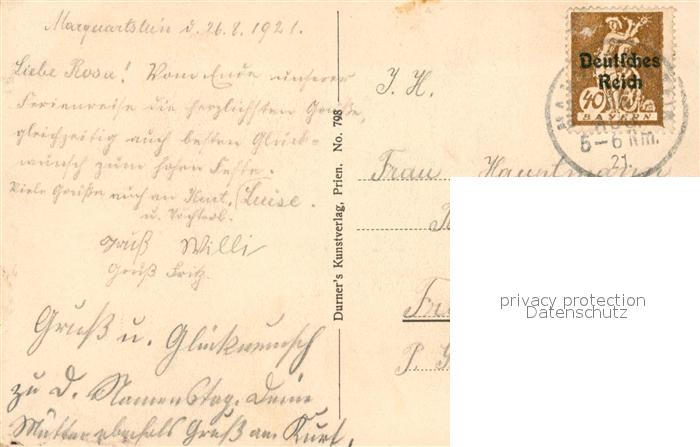 Marquartstein d. 26.8.1921.
Liebe Rosa! Vom Ende unserer
Ferienreise die herzlichsten Grüße,
gleichzeitig auch besten Glück-
wunsch zum hohen Feste.
Viele Grüße auch an Kurt, (Luise.
u. Töchterl.
Gruß Willi
Gruß Fritz.
Gruß u. Glückwunsch
zu D. Namenstag. Deine
Mutter ebenfals Gruß an Kurt,
Durner's Kunstverlag, Prien. No. 798
Deutsches
Reich
40
BAYERN
5-6 Nm.
21.
I. H.
Frau Hauptmann
privacy protection
Datenschutz